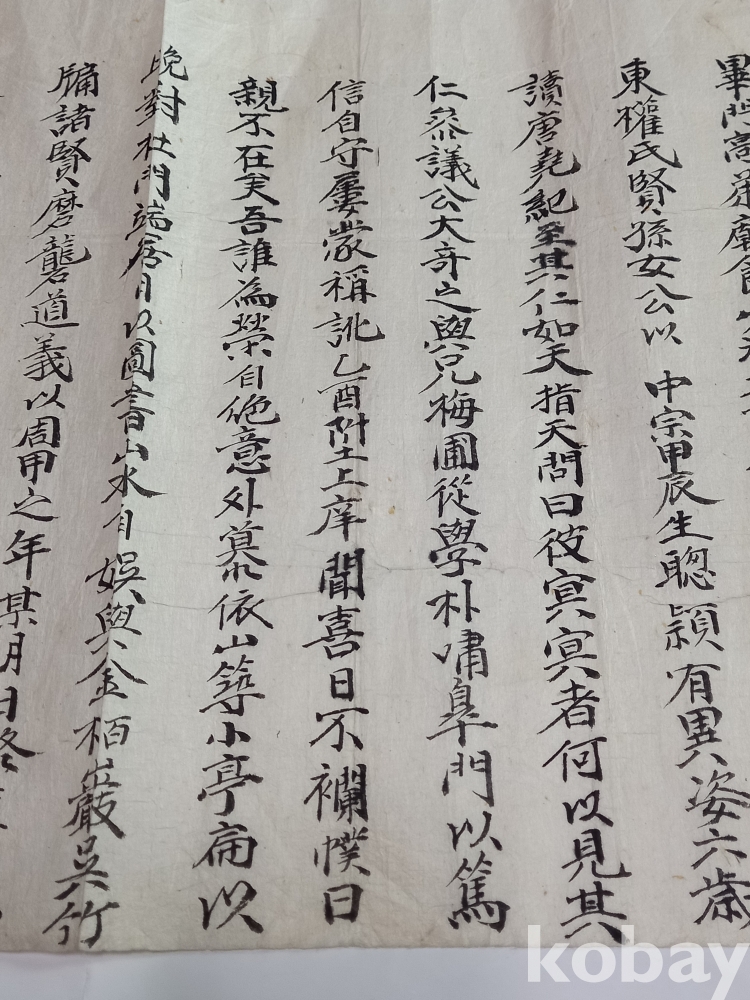 東權氏賢孫女公以 中宗甲辰生聰穎有異姿六歲
讀唐堯紀至其仁如天指天問曰彼冥冥者何以見其
仁參議公大奇之與兄梅圃從學朴嘯皐門以篤
信自守屢蒙稱詑乙酉附土上庠聞喜日不襴幞曰
親不在矣吾誰為榮自絶意外慕依山築小亭扁以
晩對杜門端居日以圖書山水自娛與金栢巖吳竹
牖諸賢磨礱道義以周甲之年某月日
kobay